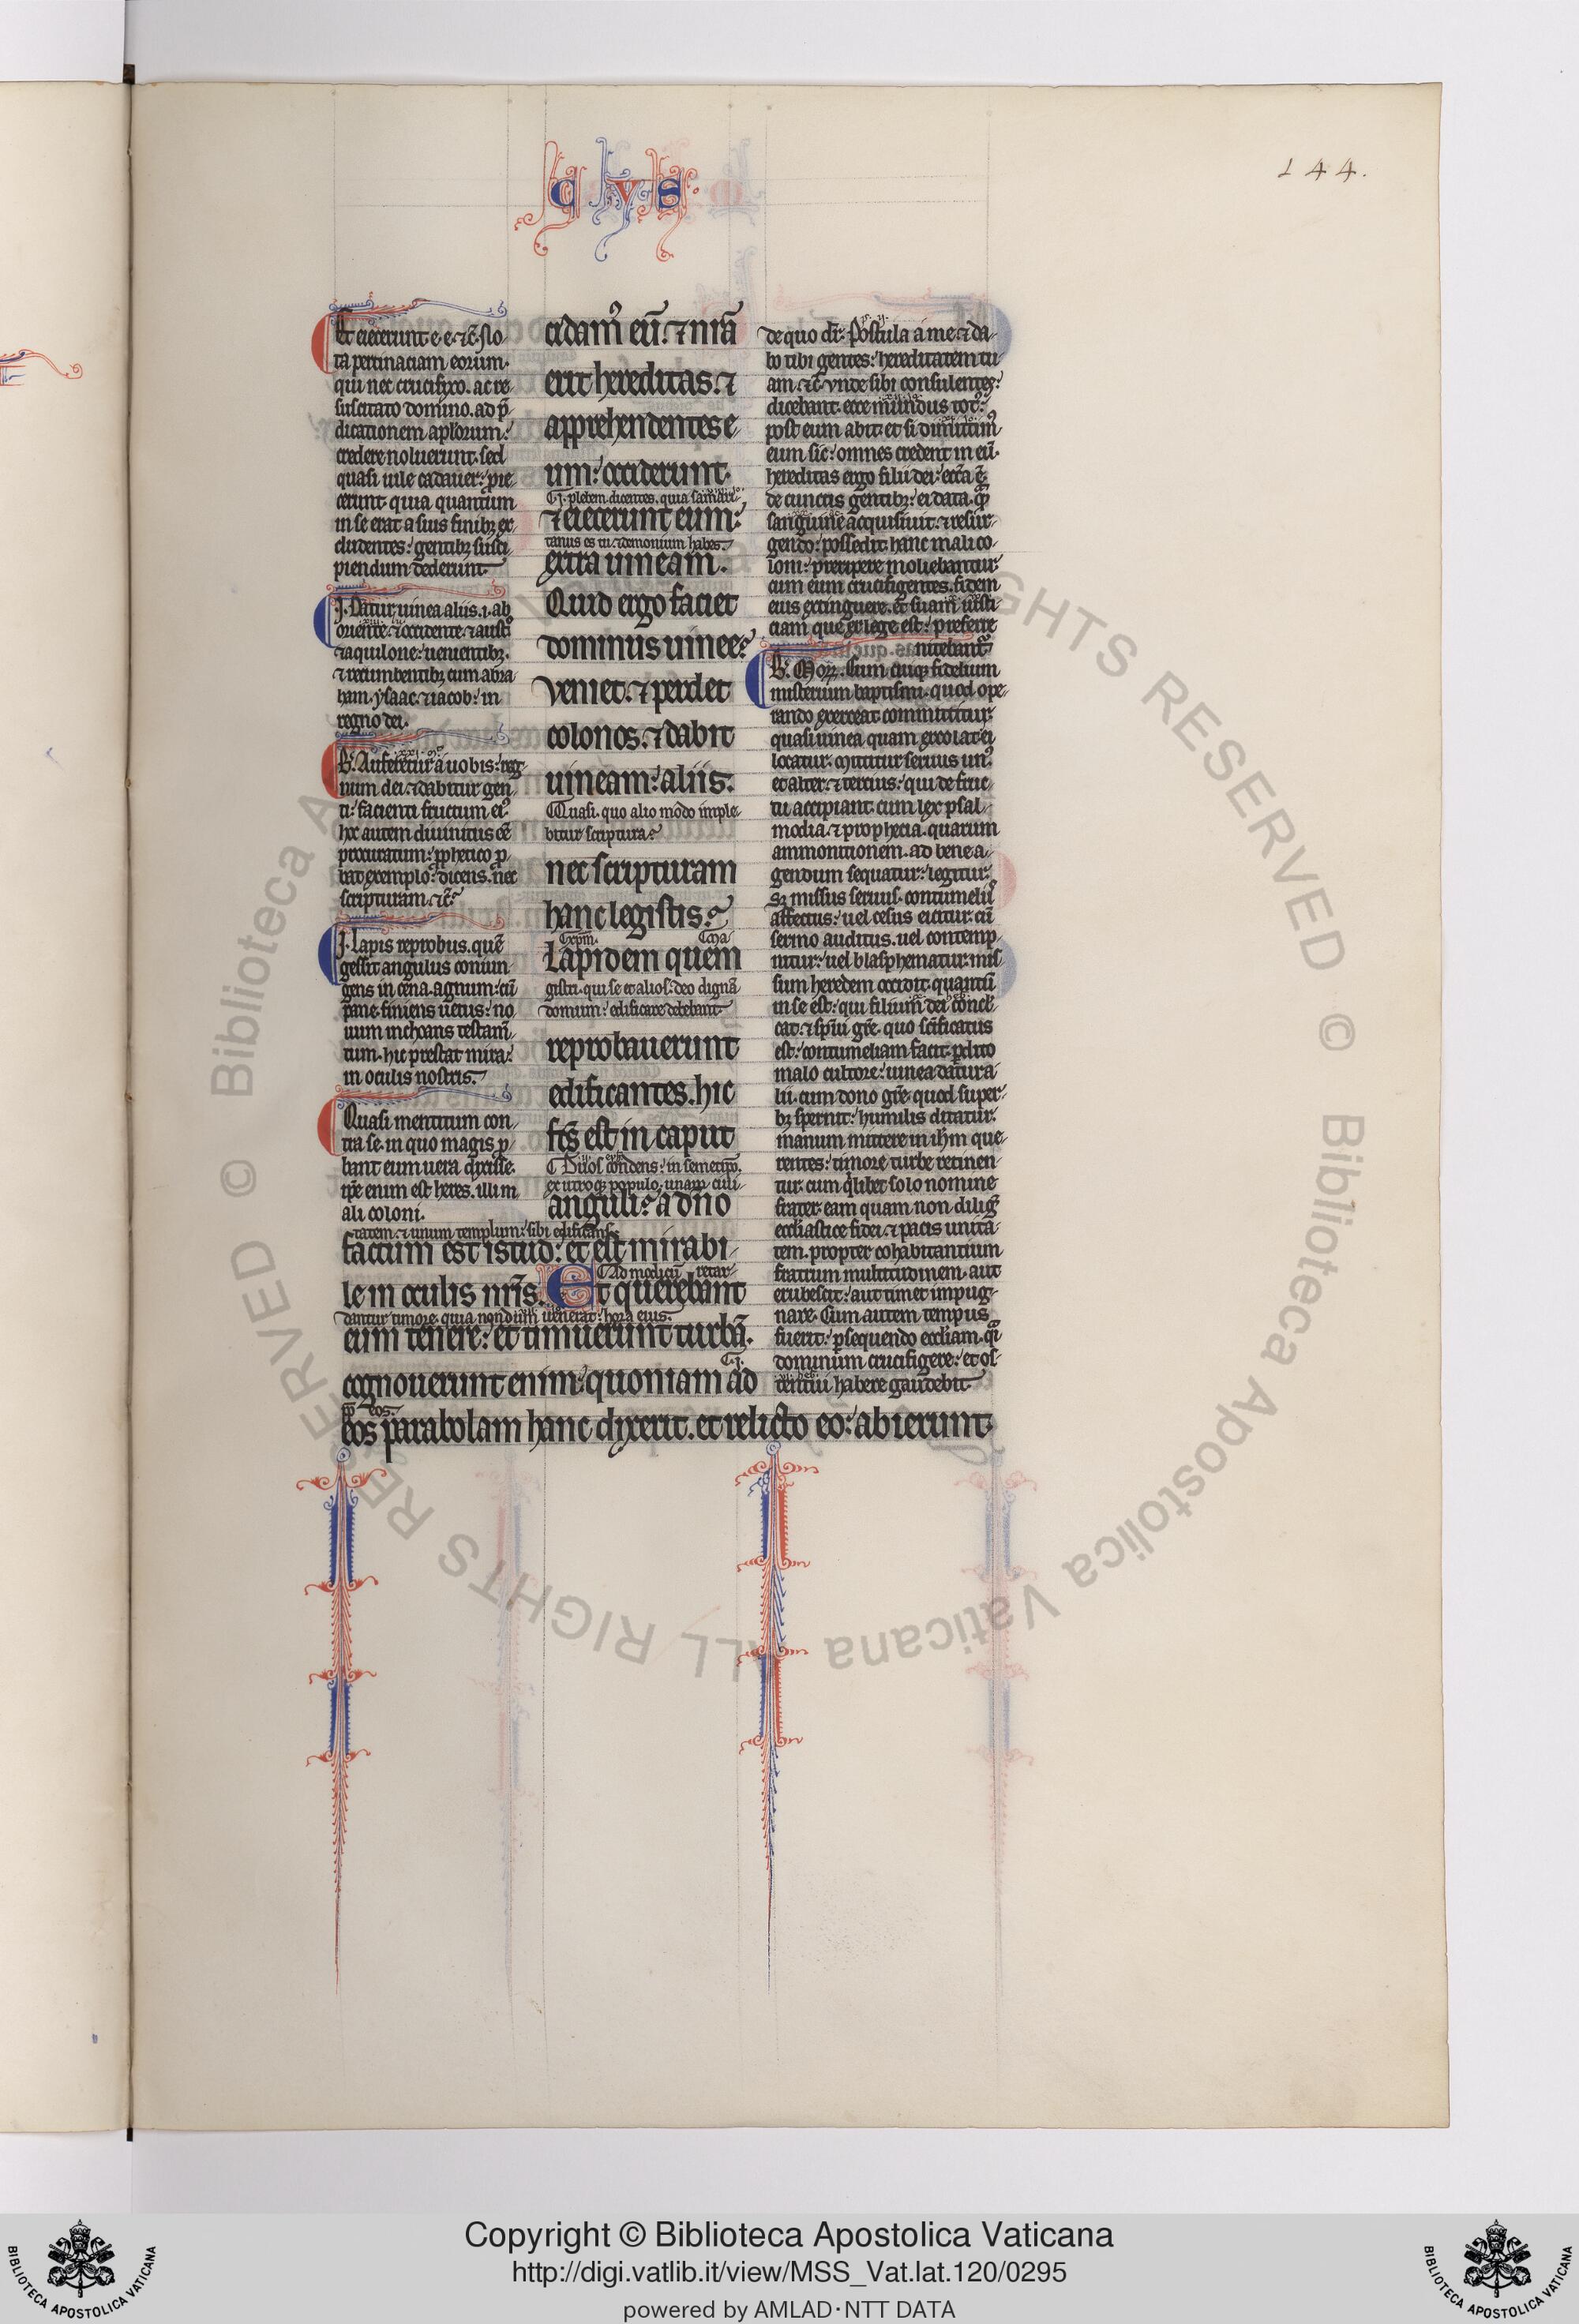 144.
C V S
Et eiecerunt e. e. ⁊ c̄. No
ta pertinaciam eorum.
qui nec crucifixo. ac re-
suscitato domino. ad p̄-
dicationem apl'orum:
credere noluerunt. sed
quasi uile cadauer: proie-
cerunt. quia quantum
in se erat a suis finibꝫ ex-
cludentes: gentibꝫ susci-
piendum dederunt.
J. Datur uinea aliis. i. ab
oriente. ⁊ occidente. ⁊ austro
⁊ aquilone: uenientibꝫ.
⁊ recumbentibꝫ cum abra-
ham. ysaac. ⁊ iacob: in
regno dei.
B'. Auferetur a uobis: reg-
num dei. ⁊ dabitur gen-
ti: facienti fructum ei'.
hoc autem diuinitus eē
procuratum: ꝓphetico ꝓ-
bat exemplo: dicens. nec
scripturam. ⁊ c̄.
J. Lapis reprobus. quē
gessit angulus coniun
gens in cena. agnum: cū
pane. finiens uetus: no
uum inchoans testam̄-
tum. hic prestat mira:
in oculis nostris.
Quasi mentitum con-
tra se. in quo magis ꝓ-
bant eum uera dixisse.
ip̄e enim est heres. illi m
ali coloni.
cidam' eū: ⁊ nr̄a
erit hereditas. ⁊
apprehendentes e-
um: occiderunt.
J. plebem. dicentes. quia samari-
⁊ eiecerunt eum:
tanus es tu. ⁊ demonium habes.
extra uineam.
Quid ergo faciet
dominus uinee?
Veniet. ⁊ perdet
colonos. ⁊ dabit
uineam: aliis.
Quasi. quo alio modo imple-
bitur scriptura?
nec scripturam
hanc legistis?
xp̄m. Ma-
Lapidem quem
gistri. qui se et alios: deo dignā
domum: edificare debebant.
reprobauerunt
edificantes. hic
fc̄s est in caput
Duos condens: in semetip̄o.
ex utroqꝫ populo. unam ciui-
anguli: a dn̄o
tatem. ⁊ unum templum: sibi edificans.
factum est istud: et est mirabi-
Ad modicū retar-
le in oculis nr̄is. Et querebant
dantur timore. quia nondum uenerat: hora eius.
eum tenere: et timuerunt turbā.
J.
cognouerunt enim: quoniam ad
eos parabolam hanc dixerit. et relicto eo: abierunt.
de quo dr̄: Postula a me. ⁊ da-
bo tibi gentes: hereditatem tu-
am. ⁊ c̄. vnde sibi consulentes:
dicebant. ecce mundus tot':
post eum abiit. et si dimittim'
eum sic: omnes credent in eū.
hereditas ergo filii dei:
de cunctis gentibꝫ: ei data.
sanguine acquisiuit. ⁊ resur-
gendo: possedit. hanc mali co-
loni: preripere moliebantur.
cum eum crucifigentes. fidem
eius extinguere. et suam iusti-
ciam que ex lege est: preferre
nitebant
Cum cuiqꝫ fidelium
misterium baptismi. quod ope-
rando exerceat committitur:
quasi uinea quam excolat ei
locatur. Mittitur seruus un'.
et alter. ⁊ tercius: qui de fruc-
tu accipiant. cum lex psal-
modia. ⁊ prophecia. quarum
ammonitionem. ad bene a-
gendum sequatur: legitur.
Sꝫ missus seruus. contumeliis
affectus: uel cesus eicitur. cū
sermo auditus. uel contemp-
nitur: uel blasphematur. mis
sum heredem occidit. quantū
in se est: qui filium dei concul-
cat. ⁊ sp̄ui gr̄e. quo sc̄ificatus
est: contumeliam facit. ꝑdito
malo cultore: uinea datur a-
lii. cum dono gr̄e. quod super-
bꝫ spernit: humilis ditatur.
manum mittere in ih̄m que-
rentes: timore turbe retinen-
tur. cum q̄libet solo nomine
frater. eam quam non dilig'
eccl'iastice fidei. ⁊ pacis unita-
tem. propter cohabitantium
fratrum multitudinem. aut
erubescit: aut timet impug-
nare. Cum autem tempus
fuerit: ꝑsequendo eccl'iam. q̄i
dominum crucifigere: et os-
tentui habere gaudebit.
© Biblioteca Apostolica Vaticana ALL RIGHTS RESERVED
Copyright © Biblioteca Apostolica Vaticana
http://digi.vatlib.it/view/MSS_Vat.lat.120/0295
powered by AMLAD·NTT DATA
BIBLIOTECA APOSTOLICA VATICANA
BIBLIOTECA APOSTOLICA VATICANA